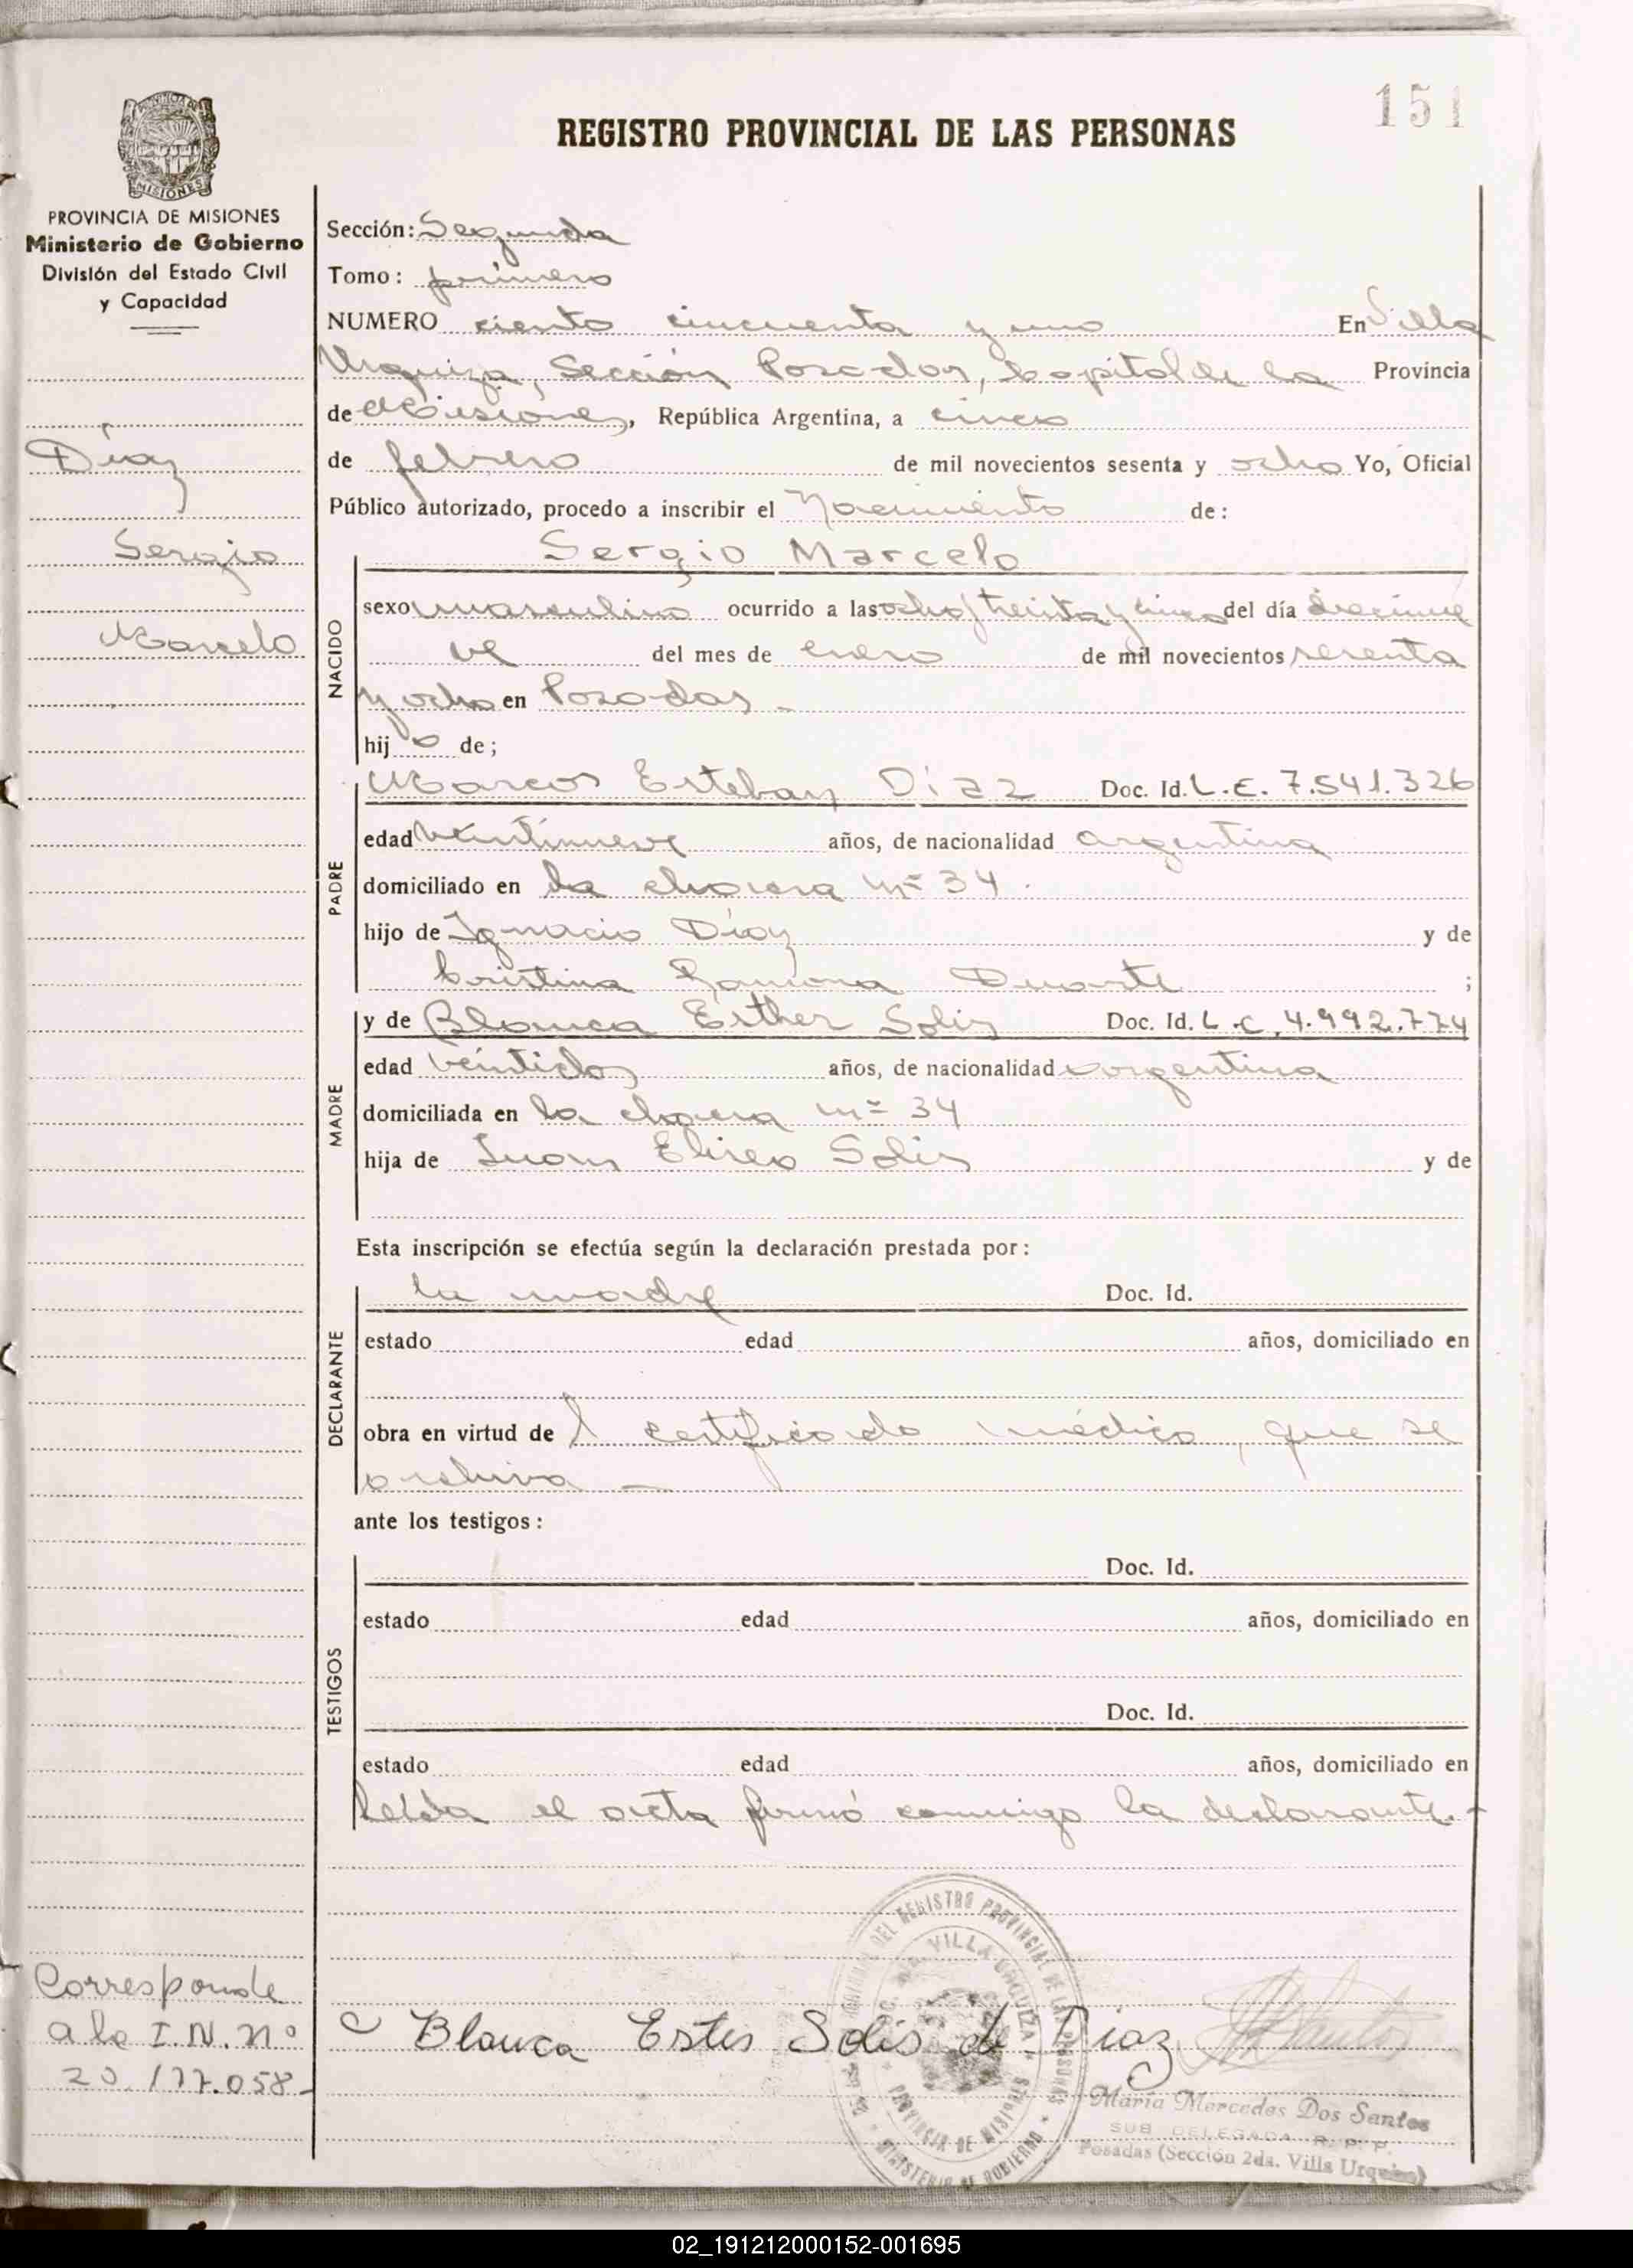 151
REGISTRO PROVINCIAL DE LAS PERSONAS
PROVINCIA DE MISIONES
Ministerio de Gobierno
División del Estado Civil
y Capacidad
Díaz
Sergio
Marcelo
Sección: Segunda
Tomo: primero
NUMERO ciento cincuenta y uno En Villa
Urquiza, Sección Posadas, Capital de la Provincia
de Misiones, República Argentina, a cinco
de febrero de mil novecientos sesenta y ocho Yo, Oficial
Público autorizado, procedo a inscribir el Nacimiento de:
NACIDO
Sergio Marcelo
sexo masculino ocurrido a las ocho/treinta y cinco del día diecinue
ve del mes de enero de mil novecientos sesenta
y ocho en Posadas.-
hijo de;
PADRE
Marcos Esteban Díaz Doc. Id. L.E. 7.541.326
edad veintinueve años, de nacionalidad argentina
domiciliado en la chacra nº 34.
hijo de Ignacio Díaz y de
Cristina Ramona Duarte ;
MADRE
y de Blanca Esther Solis Doc. Id. L.C. 4.992.774
edad veintidos años, de nacionalidad argentina
domiciliada en la chacra nº 34
hija de Juan Eliseo Solis y de
Esta inscripción se efectúa según la declaración prestada por:
DECLARANTE
la madre Doc. Id.
estado edad años, domiciliado en
obra en virtud del certificado médico, que se
archiva —
ante los testigos:
TESTIGOS
Doc. Id.
estado edad años, domiciliado en
Doc. Id.
estado edad años, domiciliado en
Leída el acta firmó conmigo la declarante.-
Corresponde
a la I.N. nº
20.177.058-
Blanca Ester Solis de Diaz
DEL REGISTRO PROVINCIAL DE LAS PERSONAS
VILLA URQUIZA
PROVINCIA DE MISIONES
MINISTERIO DE GOBIERNO
María Mercedes Dos Santos
SUB DELEGADA R. P. P.
Posadas (Sección 2da. Villa Urquiza)
02_191212000152-001695